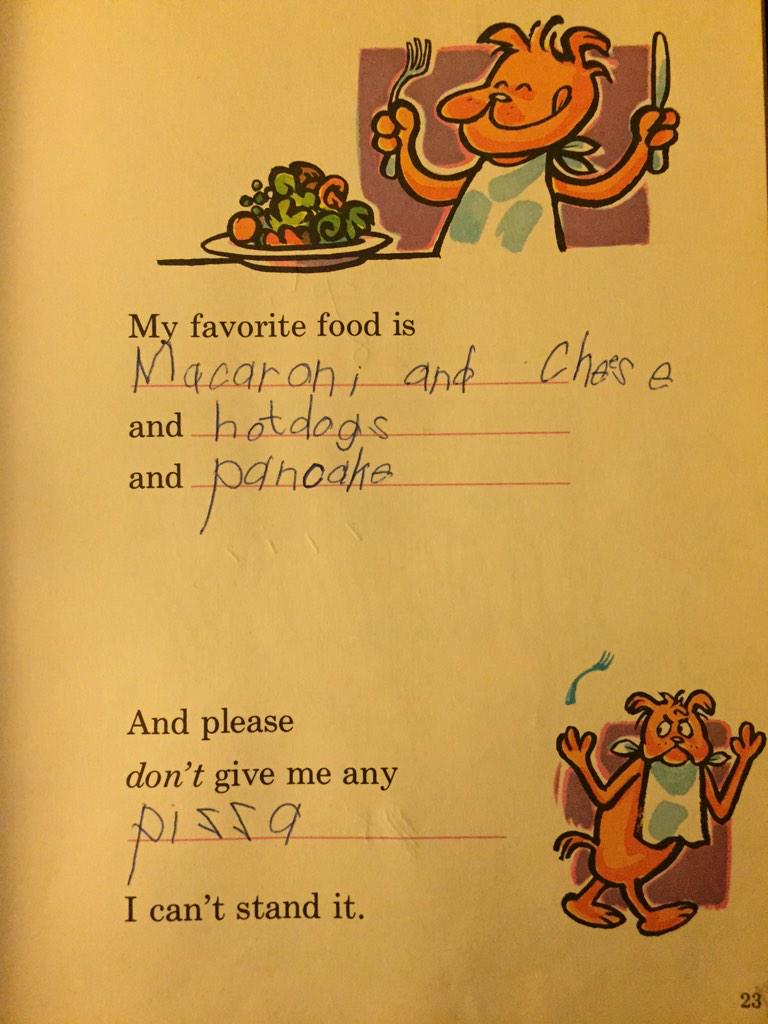 My favorite food is
Macaroni and Cheese
and hotdogs
and pancake
And please
don't give me any
pizza
I can't stand it.
23